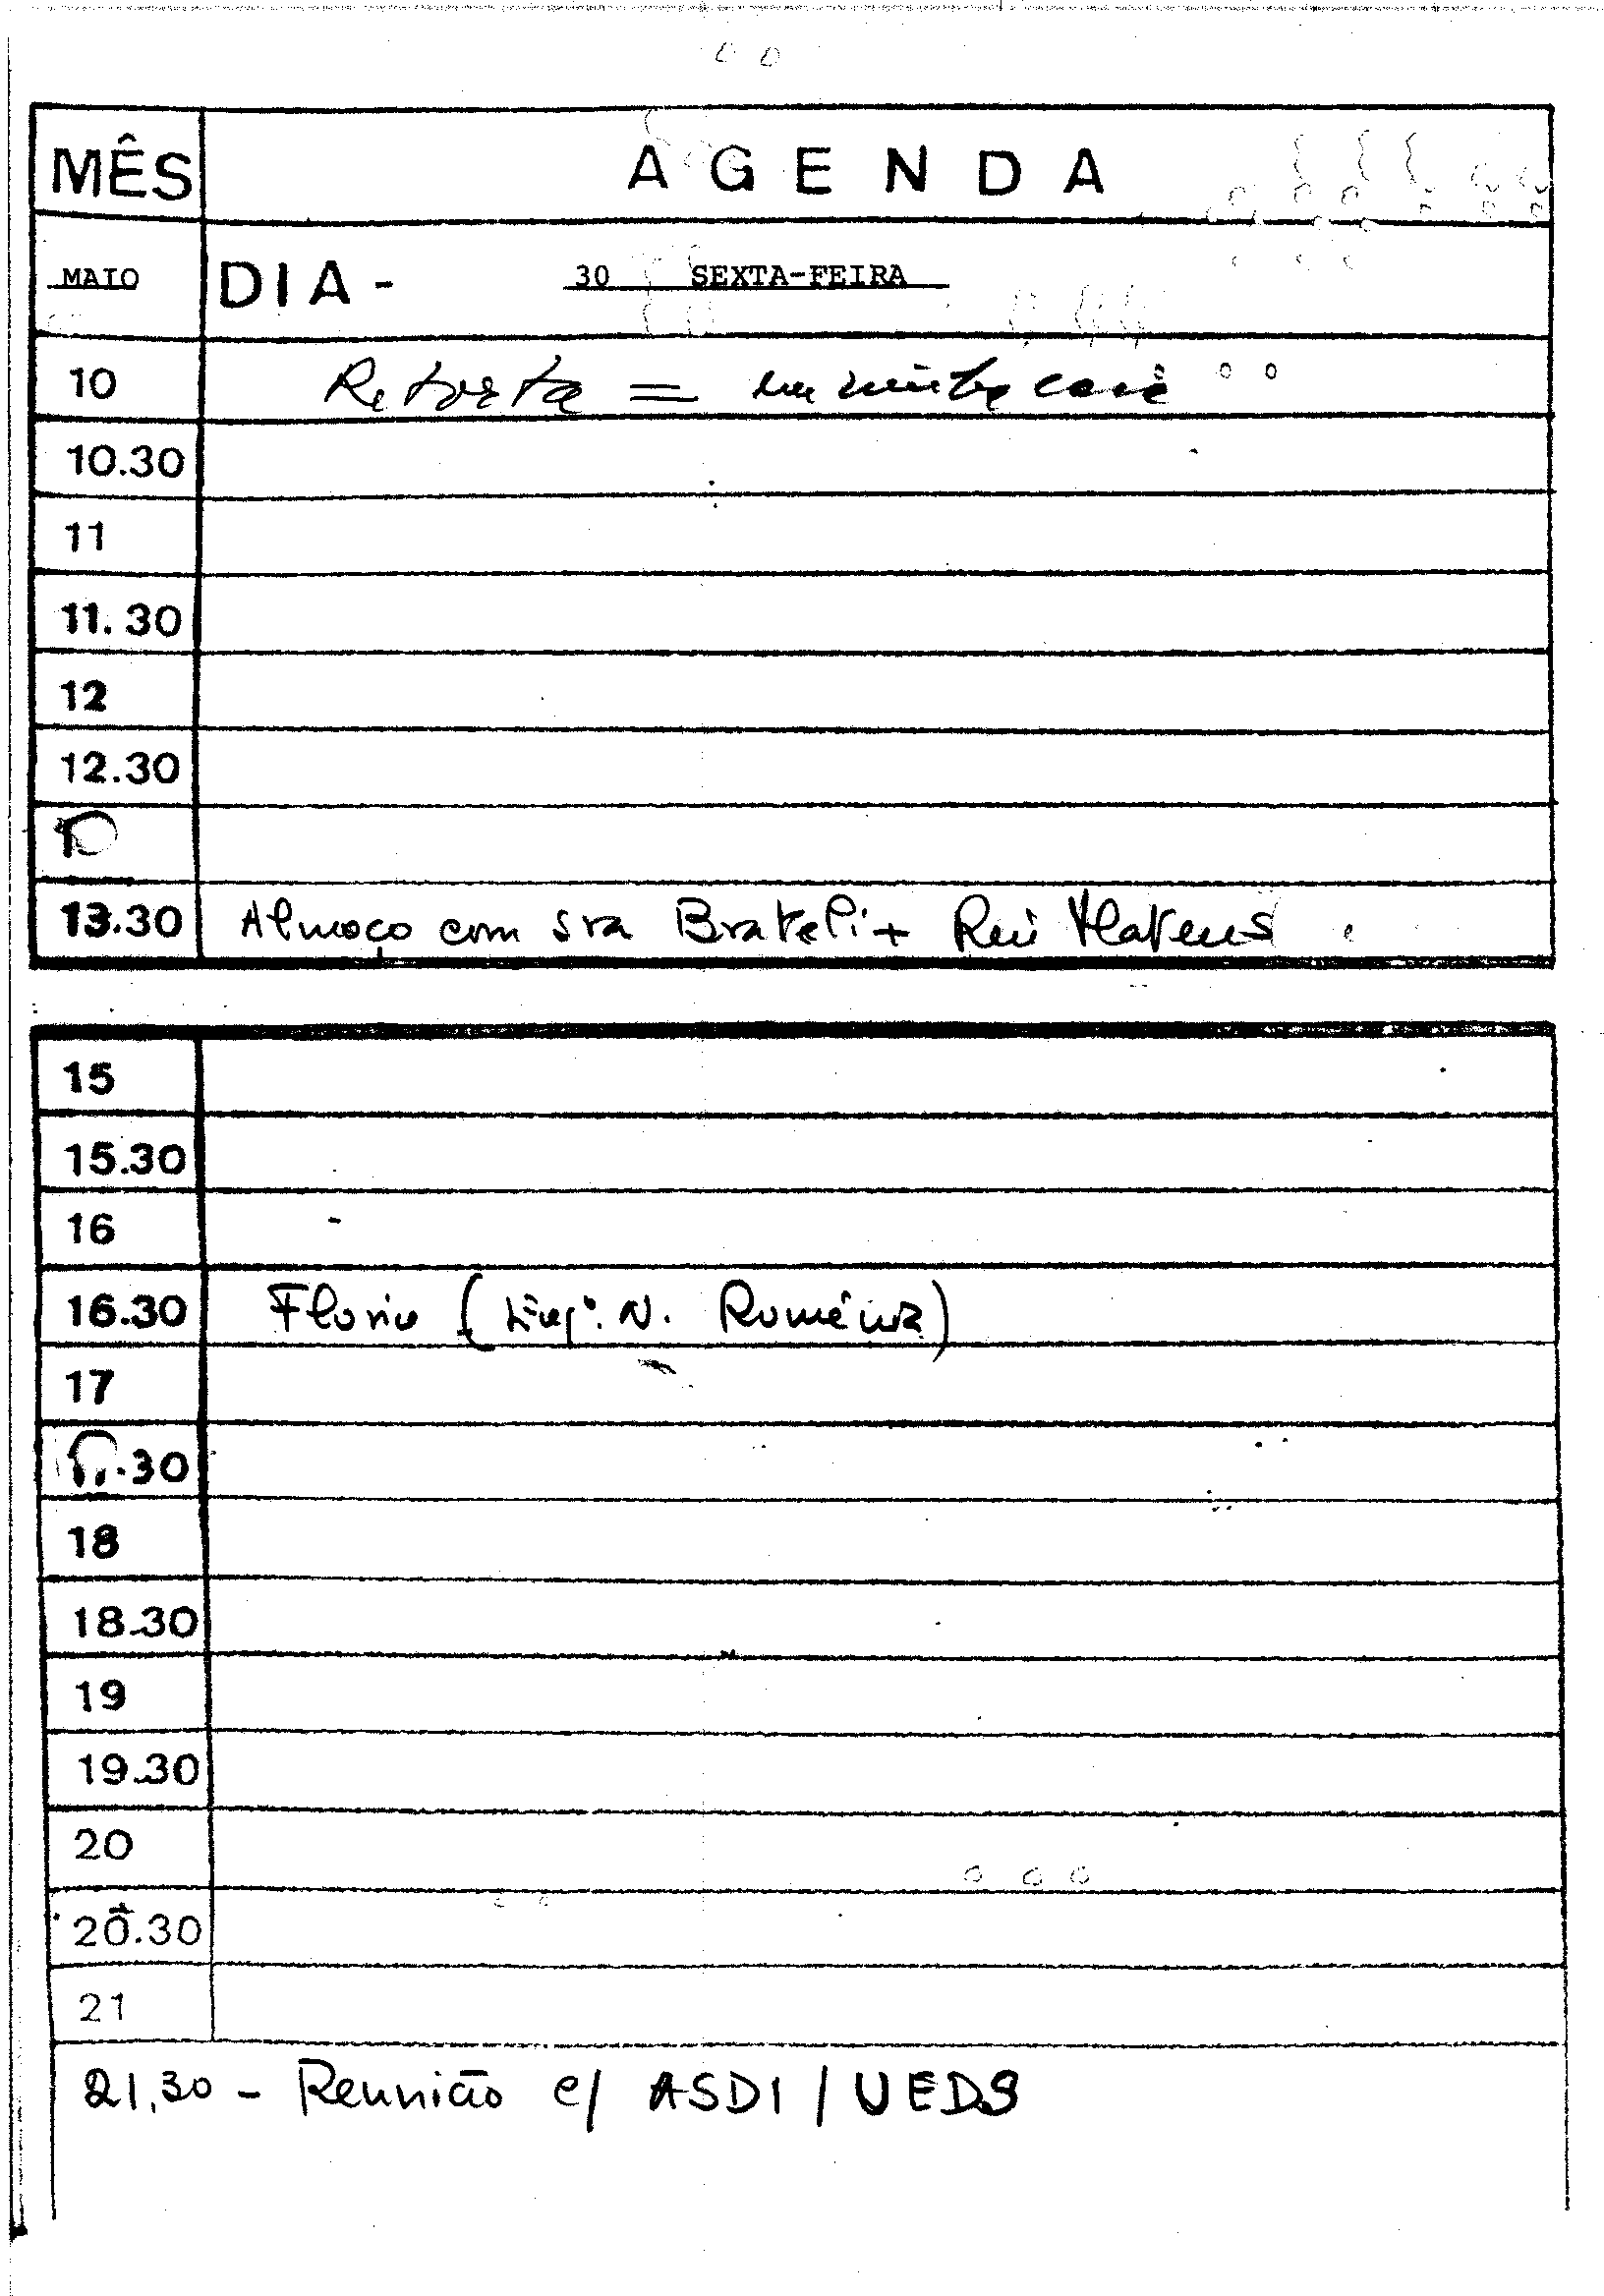 MÊS AGENDA
MAIO DIA - 30 SEXTA-FEIRA
10 Retorta = em minha casa
10.30
11
11.30
12
12.30
1
13.30 Almoço com sra Brateli + Rui Mateus
15
15.30
16
16.30 Florin ( N. Roménia)
17
.30
18
18.30
19
19.30
20
20.30
21
21,30 - Reunião c/ ASDI / UEDS